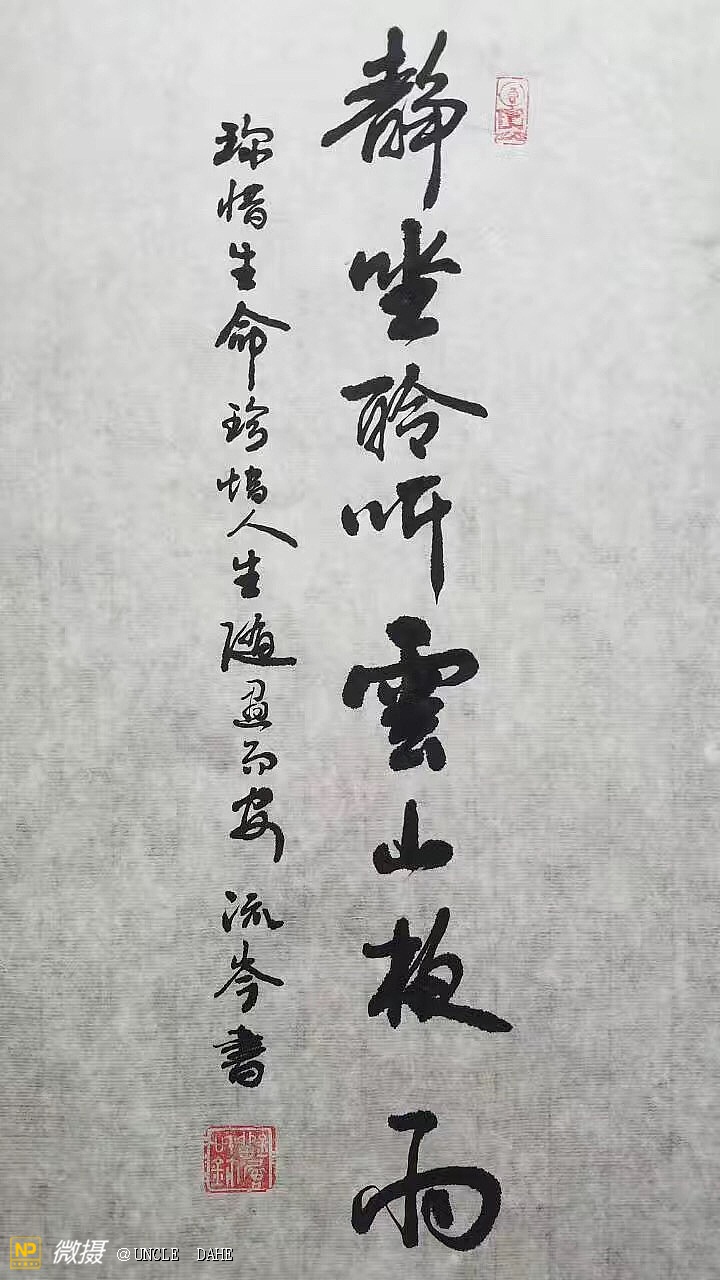 靜坐聆听雲山板雨
珎惜生命珍惜人生随遇而安 流岑書
NP 微摄 @UNCLE DAHE